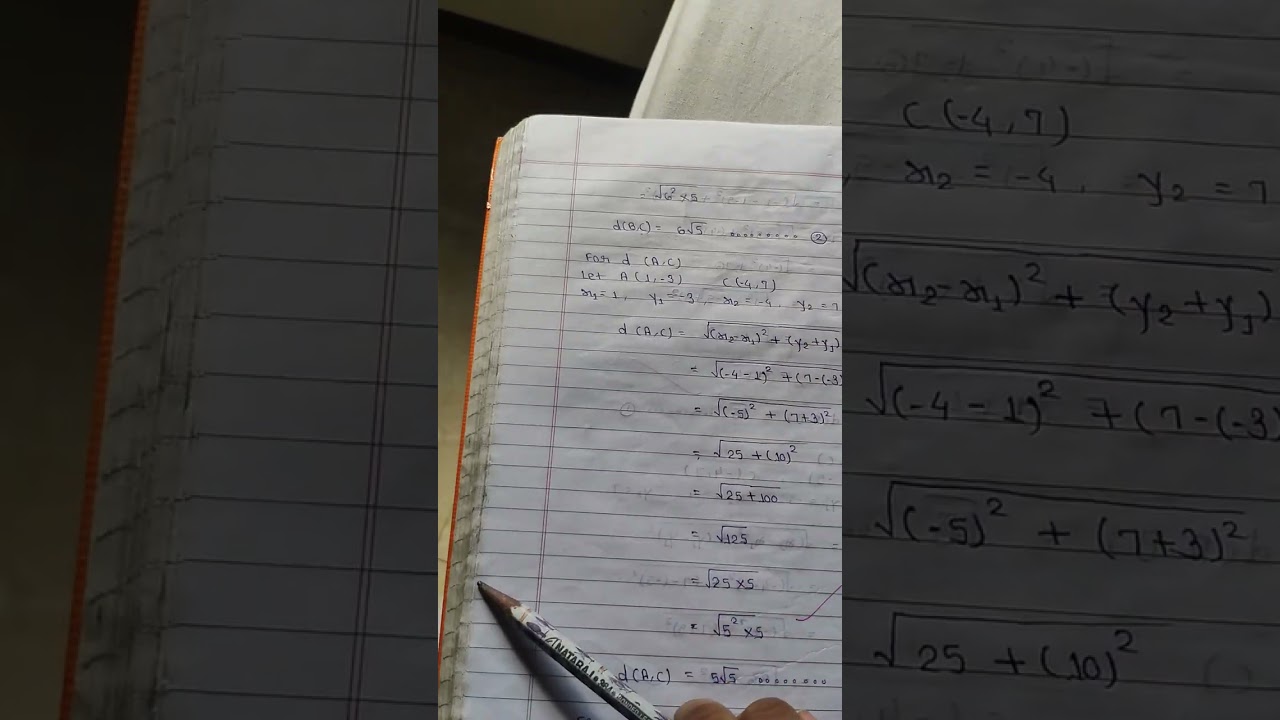 = √6² × 5
d(B,C) = 6√5 ......... ②
For d (A,C)
Let A (1,-3) C(-4,7)
x₁ = 1, y₁ = -3, x₂ = -4, y₂ = 7
d (A,C) = √(x₂-x₁)² + (y₂+y₁)
= √(-4-1)² + (7-(-3)
= √(-5)² + (7+3)²
= √25 + (10)²
= √25 + 100
= √125
= √25 × 5
= √5² × 5
d(A,C) = 5√5 ........
NATARAJ
C(-4,7)
x₂ = -4, y₂ = 7
√(x₂-x₁)² + (y₂+y₁)
√(-4-1)² + (7-(-3)
√(-5)² + (7+3)²
√25 + (10)²